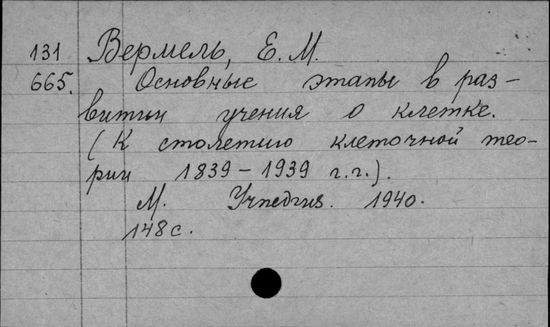 131 Вермель, Е. М.
665. Основные этапы в раз-
витии учения о клетке.
(К столетию клеточной тео-
рии 1839-1939 г.г.).
М. Учпедгиз. 1940.
148 с.